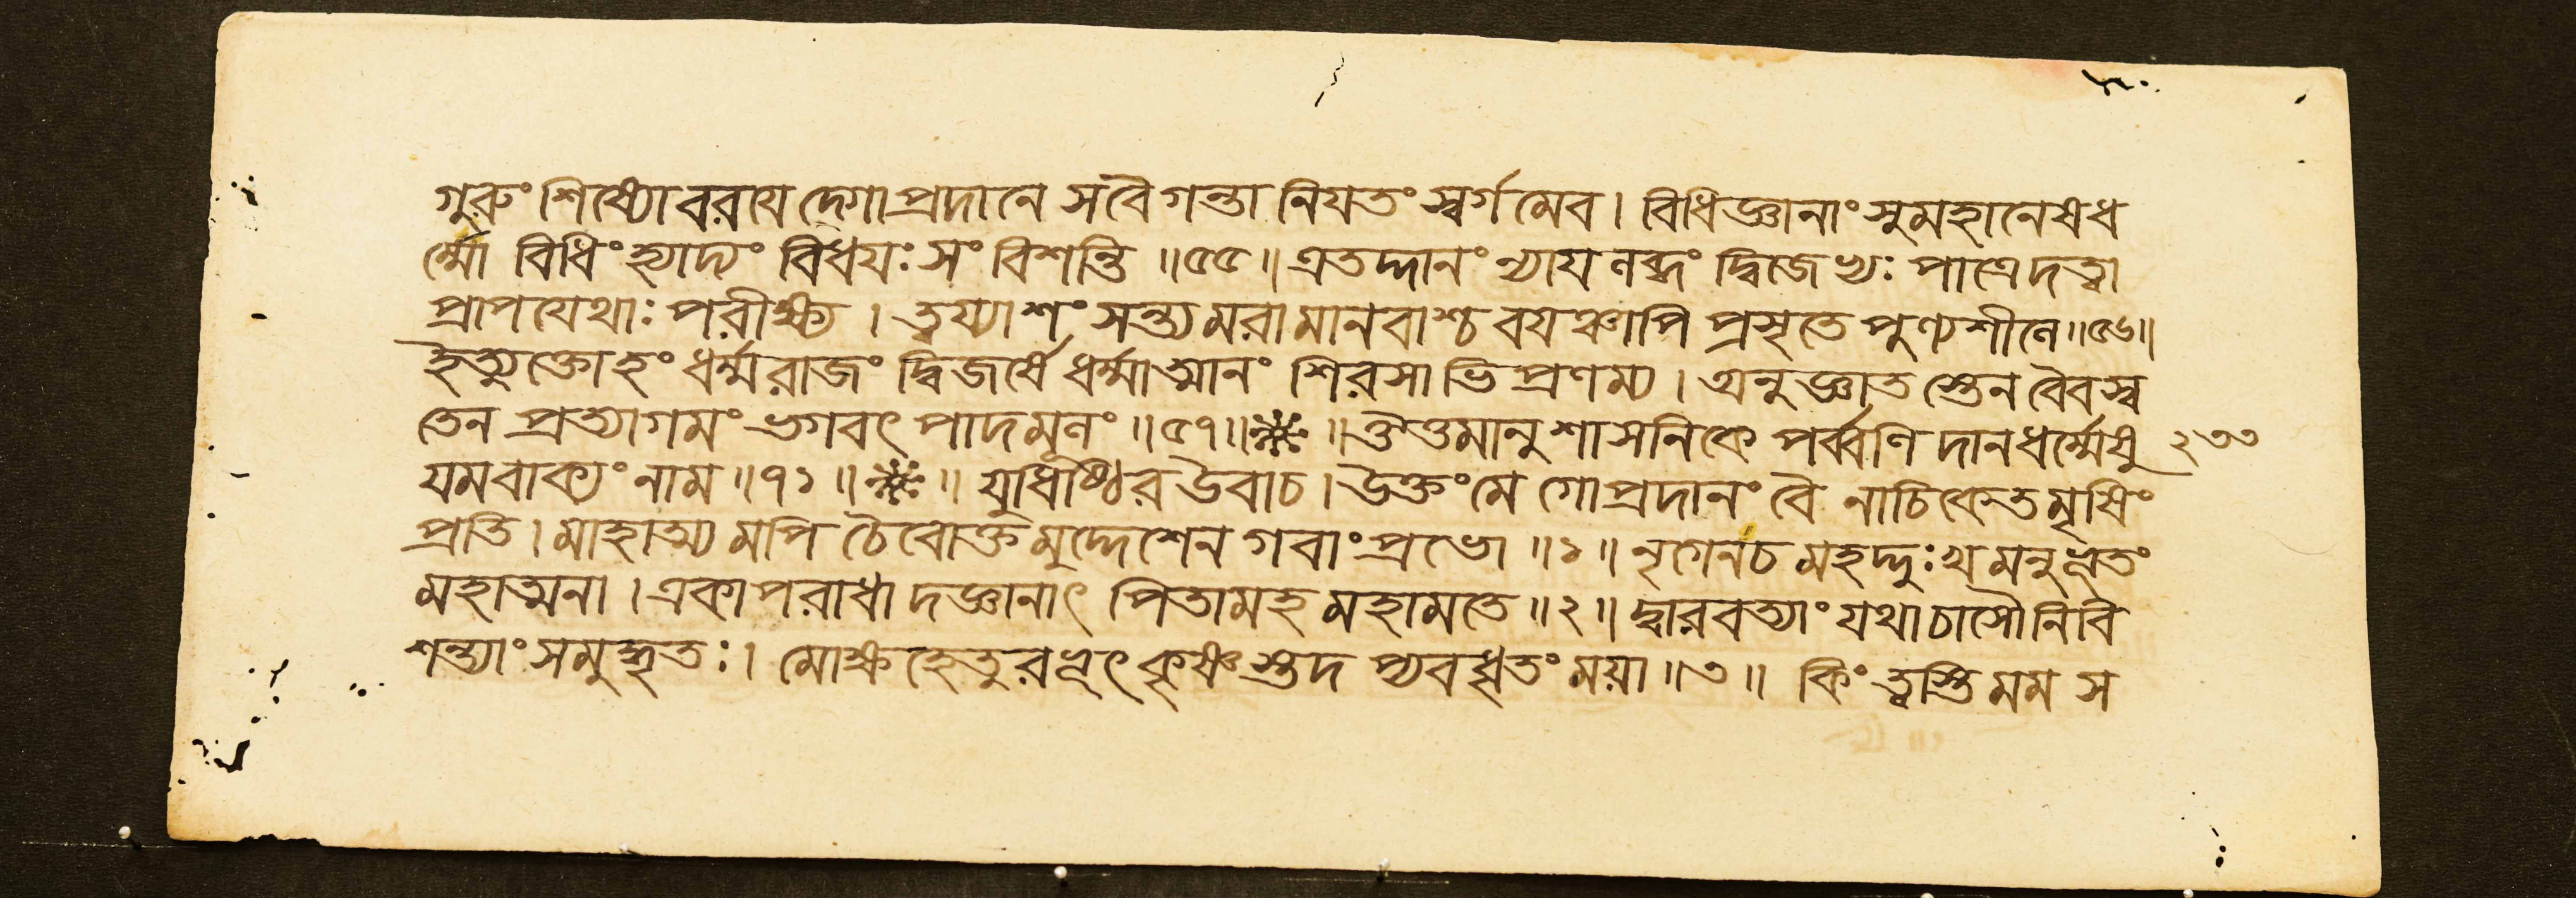 গুরুং শিষ্যো বরয়েদ্গোপ্রদানে সবৈ গন্তা নিয়তং স্বর্গমেব। বিধিজ্ঞানাং সুমহানেষধ
র্ম্মো বিধিং হ্যাদ্যং বিধয়ঃ সং বিশন্তি ॥৫৫॥ এতদ্দানং ন্যায়লব্ধং দ্বিজেভ্যঃ পাত্রে দত্বা
প্রাপয়েথাঃ পরীক্ষ্য। ত্বয্যাশং সন্ত্যমরামানবাশ্চ বয়ঞ্চাপি প্রসৃতে পুণ্যশীলে॥৫৬॥
ইত্যুক্তোহং ধর্ম্মরাজং দ্বিজর্ষে ধর্ম্মাত্মানং শিরসাভিপ্রণম্য। অনুজ্ঞাতস্তেন বৈবস্ব
তেন প্রত্যাগমং ভগবৎ পাদমূলং ॥৫৭॥ ॥ ঔত্তমানুশাসনিকে পর্ব্বণি দানধর্ম্মেষু ২৩৩
যমবাক্যং নাম ॥৭১॥ ॥ যুধিষ্ঠির উবাচ। উক্তং মে গোপ্রদানং বৈ নাচিকেতমৃষিং
প্রতি। মাহাত্ম্যমপি চৈবোক্তমুদ্দেশেন গবাং প্রভো ॥১॥ নৃগেনচ মহদ্দুঃখমনুভূতং
মহাত্মনা। একাপরাধাদজ্ঞানাৎ পিতামহ মহামতে ॥২॥ দ্বারবত্যাং যথা চাসৌ নিবি
শন্ত্যাং সমুদ্ধৃতঃ। মোক্ষহেতুরভূৎ কৃষ্ণস্তদপ্যবধৃতং ময়া ॥৩॥ কিং ত্বস্তি মম স